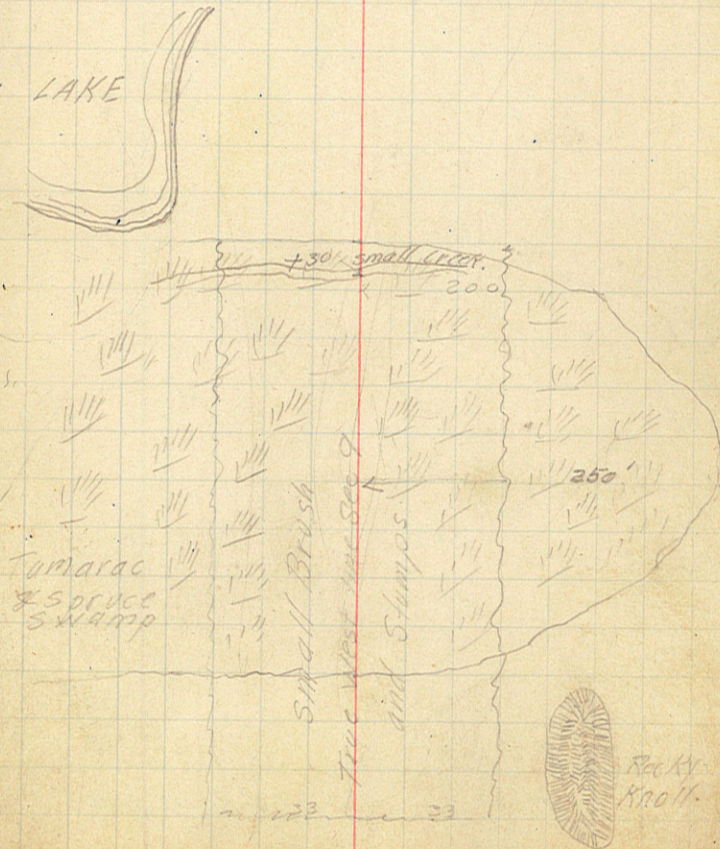 LAKE
+30 small creek.
200
250'
Tamarac
& Spruce
Swamp
Small Brush
True West line Sec 9
and Stumps
33
33
Rocky
Knoll.